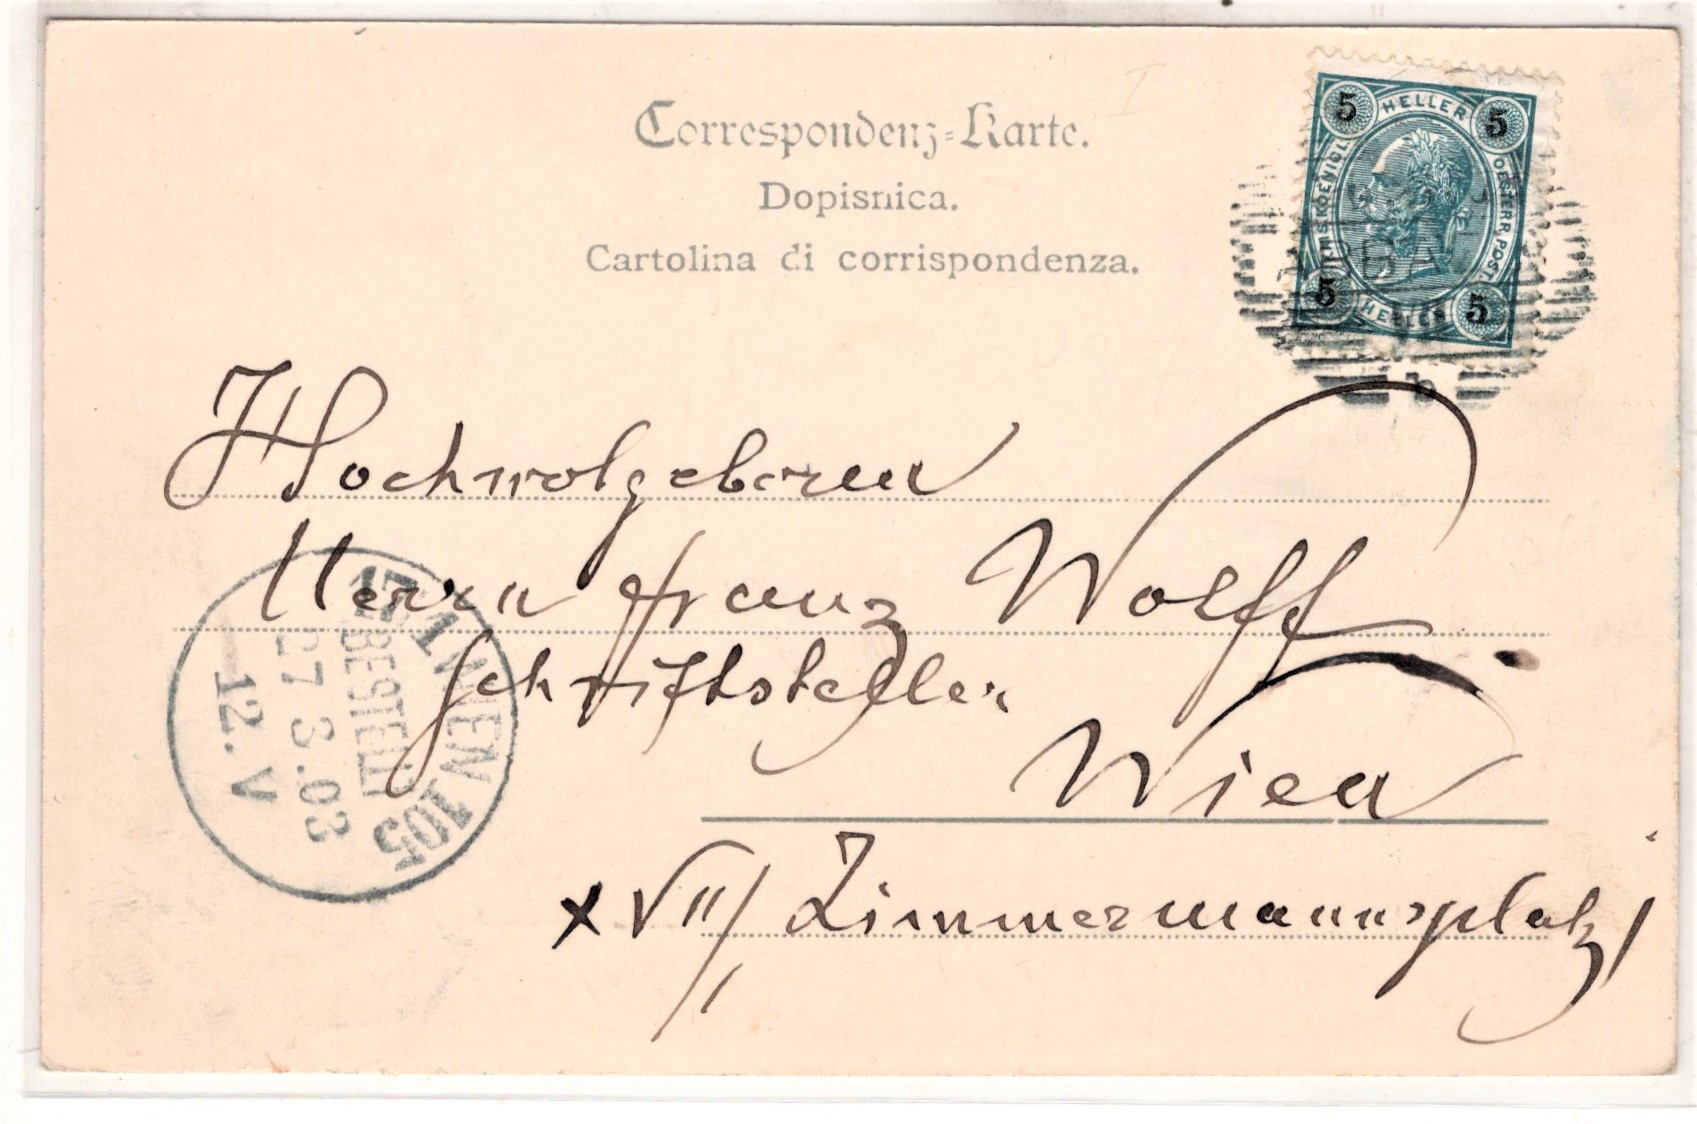 Correspondenz-Karte.
Dopisnica.
Cartolina di corrispondenza.
5 HELLER 5
KAIS. KOENIGL. OESTERR. POST.
5 HELLER 5
b
Hochwolgeboren
Herrn Franz Wolff
Schriftsteller
Wien
x VII/ Zimmermannsplatz 1
17/1 WIEN 105
BESTELLT
27 3.03
12.V